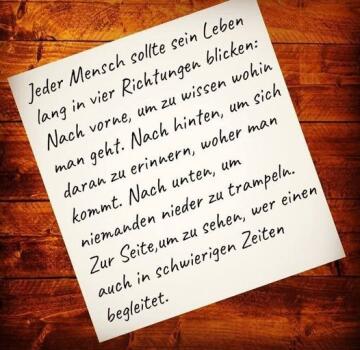 Jeder Mensch sollte sein Leben
lang in vier Richtungen blicken:
Nach vorne, um zu wissen wohin
man geht. Nach hinten, um sich
daran zu erinnern, woher man
kommt. Nach unten, um
niemanden nieder zu trampeln.
Zur Seite,um zu sehen, wer einen
auch in schwierigen Zeiten
begleitet.